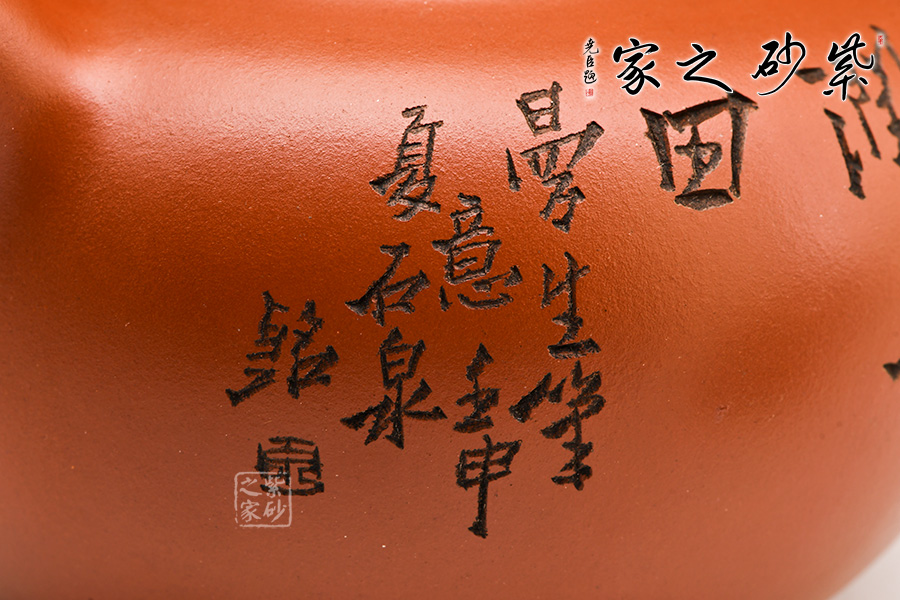 紫砂之家
尧臣题
田
曼生笔
意壬申
夏石泉
铭
紫砂
之家